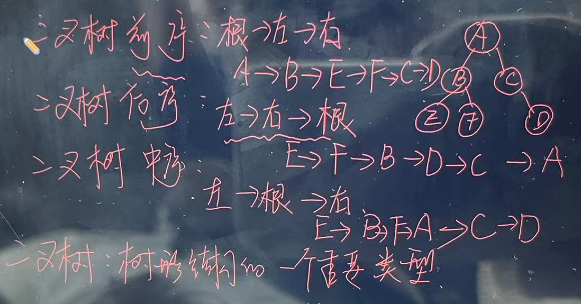 二叉树前序：根→左→右
A→B→E→F→C→D
二叉树后序：左→右→根
E→F→B→D→C→A
二叉树中序：
左→根→右
E→B→F→A→C→D
二叉树：树形结构的一个重要类型
A
B C
E F D